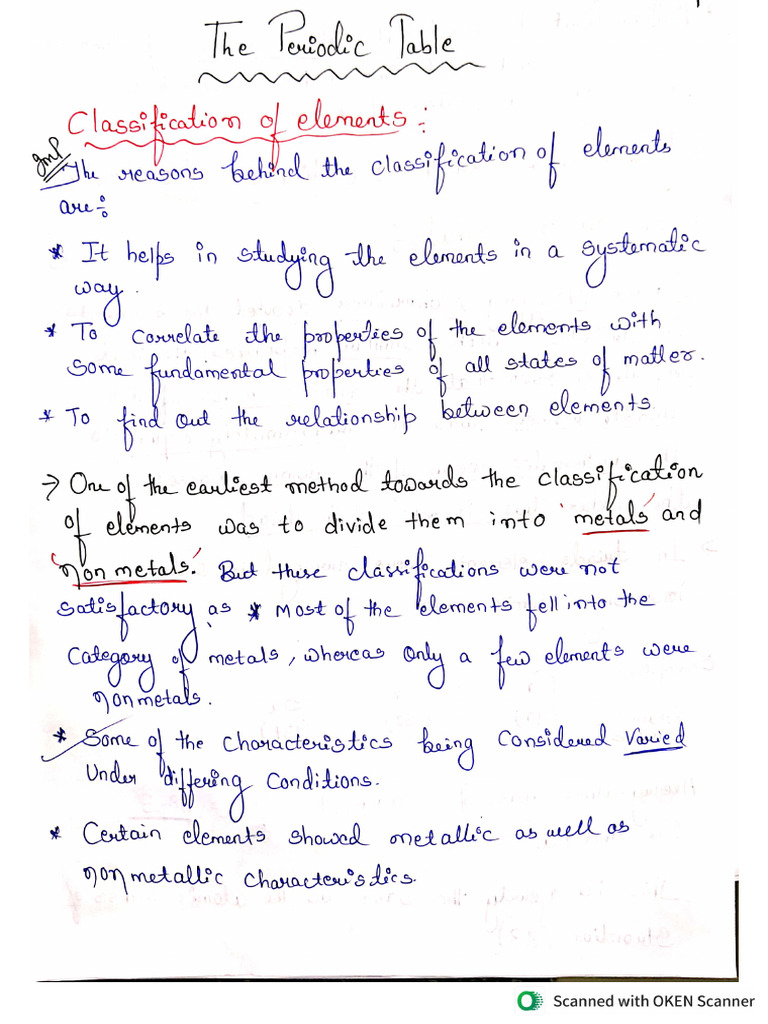 The Periodic Table
Classification of elements:
Imp
The reasons behind the classification of elements
are:
* It helps in studying the elements in a systematic
way.
* To correlate the properties of the elements with
some fundamental properties of all states of matter.
* To find out the relationship between elements
→ One of the earliest method towards the classification
of elements was to divide them into 'metals' and
'non metals.' But these classifications were not
satisfactory as * most of the elements fell into the
category of metals, whereas only a few elements were
nonmetals.
* Some of the characteristics being considered varied
under differing conditions.
* Certain elements showed metallic as well as
nonmetallic characteristics.
Scanned with OKEN Scanner